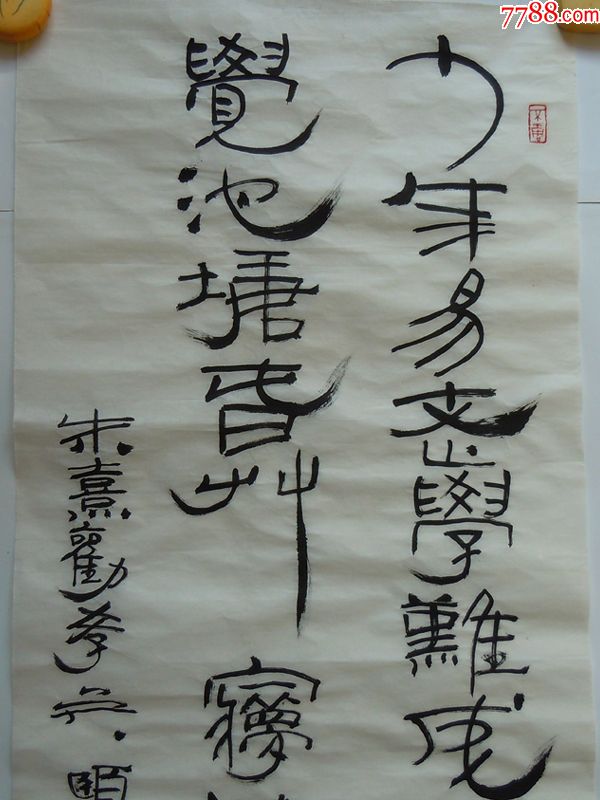 7788.com
少年易老學難成
覺池塘旾艸夢
朱熹勸學